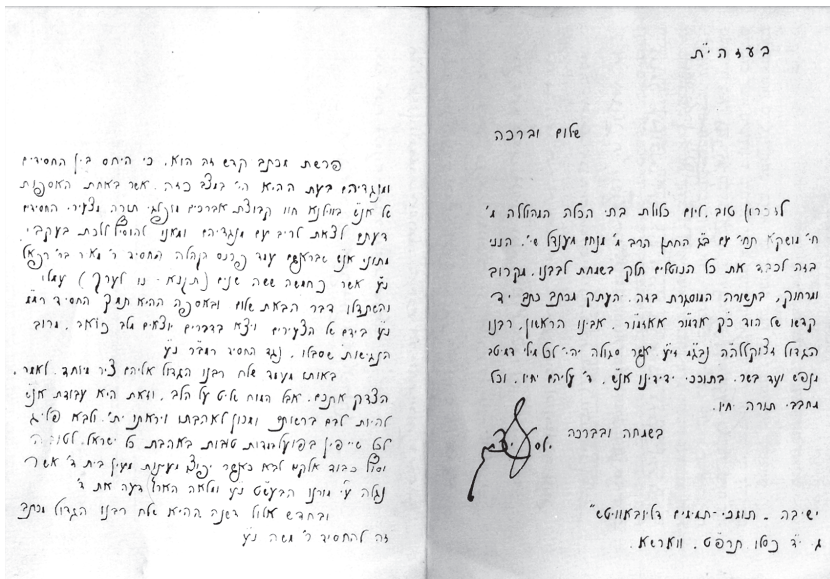 בעזהי״ת
שלום וברכה
לזכרון טוב. ליום כלולת בתי הכלה המהוללה מ׳
חי׳ מושקא תחי׳ עם ב״ג החתן הרב מ׳ מנחם מענדל שי׳. הנני
בזה לכבד את כל הנוטלים חלק בשמחת לבבנו. מקרוב
ומרחוק. בתשורה המוסגרת בזה. העתק מכתב כתב יד
קדשו של הוד כ״ק אדמו״ר אאזמו״ר. אבינו הראשון. רבנו
הגדול זצוקללה״ה נבג״מ זי״ע אשר סגולה יהי׳ לכל מילי דמיטב
מנפש ועד בשר. בתוככי ידידינו אנ״ש. ד׳ עליהם יחיו. וכל
מחבבי תורה יחיו.
בשמחה ובברכה
ישיבה - תומכי-תמימים דליובאוויטש״
ג. י״ד כסלו תרפ״ט. ווארשא.
פרשת מכתב קדש זה הוא. כי היחס בין החסידים
ומנגדיהם בעת ההיא הי׳ במצב כזה. אשר באחת האספות
של אנ״ש בווילנא חוו קבוצת אברכים מופלגי תורה מצעירי החסידים
דעתם לצאת לריב עם מנגדיהם ומאנו להוסיף ללכת בעקבי
מתוני אנ״ש שבראשם עמד פרנס הקהלה החסיד ר׳ מאיר בר׳ רפאל
נ״ע אשר כחמשה ששה שנים (תקנ״א - נז לערך) עמלו
והשתדלו דבר הבאת שלום ובאספה ההיא תמך החסיד
נ״ע בידם של הצעירים ויצא בדברים יוצאים מלב כואב. מרוב
הנגישות שסבלו. נגד החסיד נ״ע
באותו מעמד שלח רבנו הגדול אליהם ציר מיוחד. לאמר.
הצדק אתכם. אבל המוח שליט על הלב. וזאת היא עבודת אנ״ש
להיות לבם ברשותם ומכון לאהבתו ויראתו ית׳. ולבא פליג
לכל שייפין בפועל מדות טובות באהבת כל ישראל. לטובה
וסוף כבוד אלקים לבא כאשר יפוצו מעינות מעין בית ד׳ אשר
נגלה ע״י מורנו הבעש״ט נ״ע ומלאה הארץ דעה את ד׳
ובחדש אלול דשנה ההיא שלח רבנו הגדול מכתב
זה להחסיד ר׳ משה נ״ע